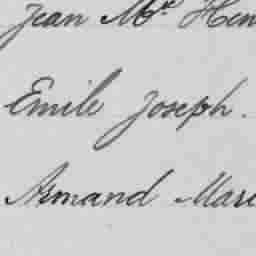 Jean M. Hen
Emile Joseph.
Armand Mari